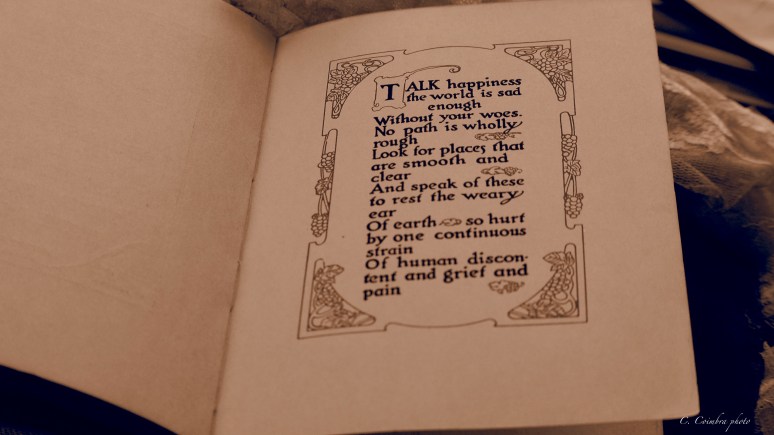 TALK happiness
the world is sad
enough
Without your woes.
No path is wholly
rough
Look for places that
are smooth and
clear
And speak of these
to rest the weary
ear
Of earth so hurt
by one continuous
strain
Of human discon-
tent and grief and
pain
C. Coimbra photo